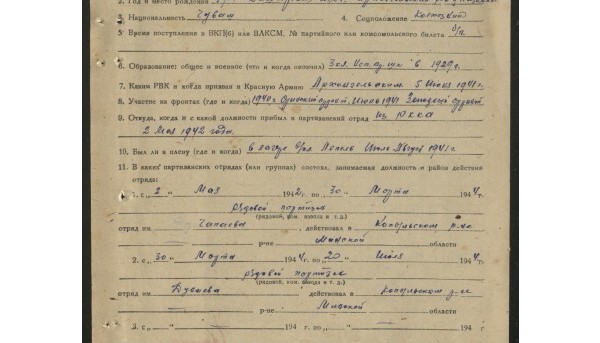 2. Год и место рождения
3. Национальность Чуваш 4. Соцположение
5. Время поступления в ВКП(б) или ВЛКСМ, № партийного или комсомольского билета б/п.
6. Образование: общее и военное (что и когда окончил) в 1929 г.
7. Каким РВК и когда призван в Красную Армию Архангельским 5 Июля 1941 г.
8. Участие на фронтах (где и когда) 1940 г. Июль 1941 Западный
9. Откуда, когда и с какой должности прибыл в партизанский отряд из
2 Мая 1942 года.
10. Был ли в плену (где и когда) в лагере Лепель Июль Август 1941 г.
11. В каких партизанских отрядах (или группах) состоял, занимаемая должность и район действия
отряда:
1. с „ 2 „ Мая 1942 г. по 30 „ Марта 1944 г.
рядовой партизан
(рядовой, ком. взвода и т. д.)
отряд им Чапаева действовал в Копыльском р-не
р-не Минской области
2. с „ 30 „ Марта 1944 г. по „ 20 „ Июля 1944 г.
рядовой партизан
(рядовой, ком. взвода и т. д.)
отряд им действовал в Копыльском р-не
р-не Минской области
3. с „ „ 194 г. по „ „ 194 г